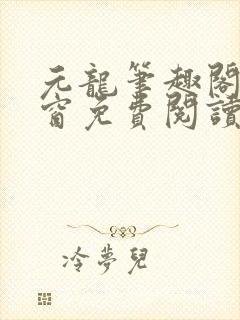 元龍筆趣閣
窗免費閱讀
冷夢兒